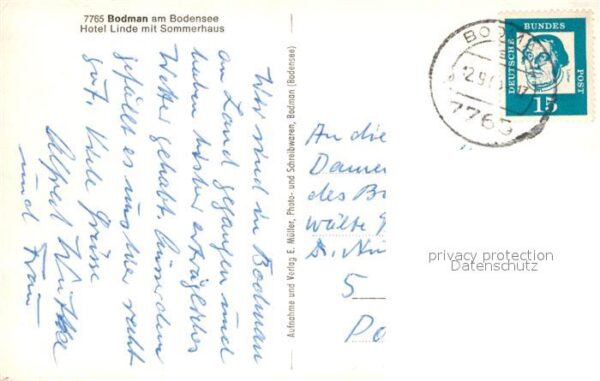 7765 Bodman am Bodensee
Hotel Linde mit Sommerhaus
Wir sind in Bodman
an Land gegangen und
haben bisher erträgliches
Wetter gehabt. Ausserdem
gefällt es uns hier recht
gut. Viele Grüsse
Alfred
und Frau
Aufnahme und Verlag E. Müller, Photo- und Schreibwaren, Bodman (Bodensee)
BODM
12.9.6
7765
DEUTSCHE BUNDES POST
15
An die
Damen
des B
wälte
privacy protection
Datenschutz
5